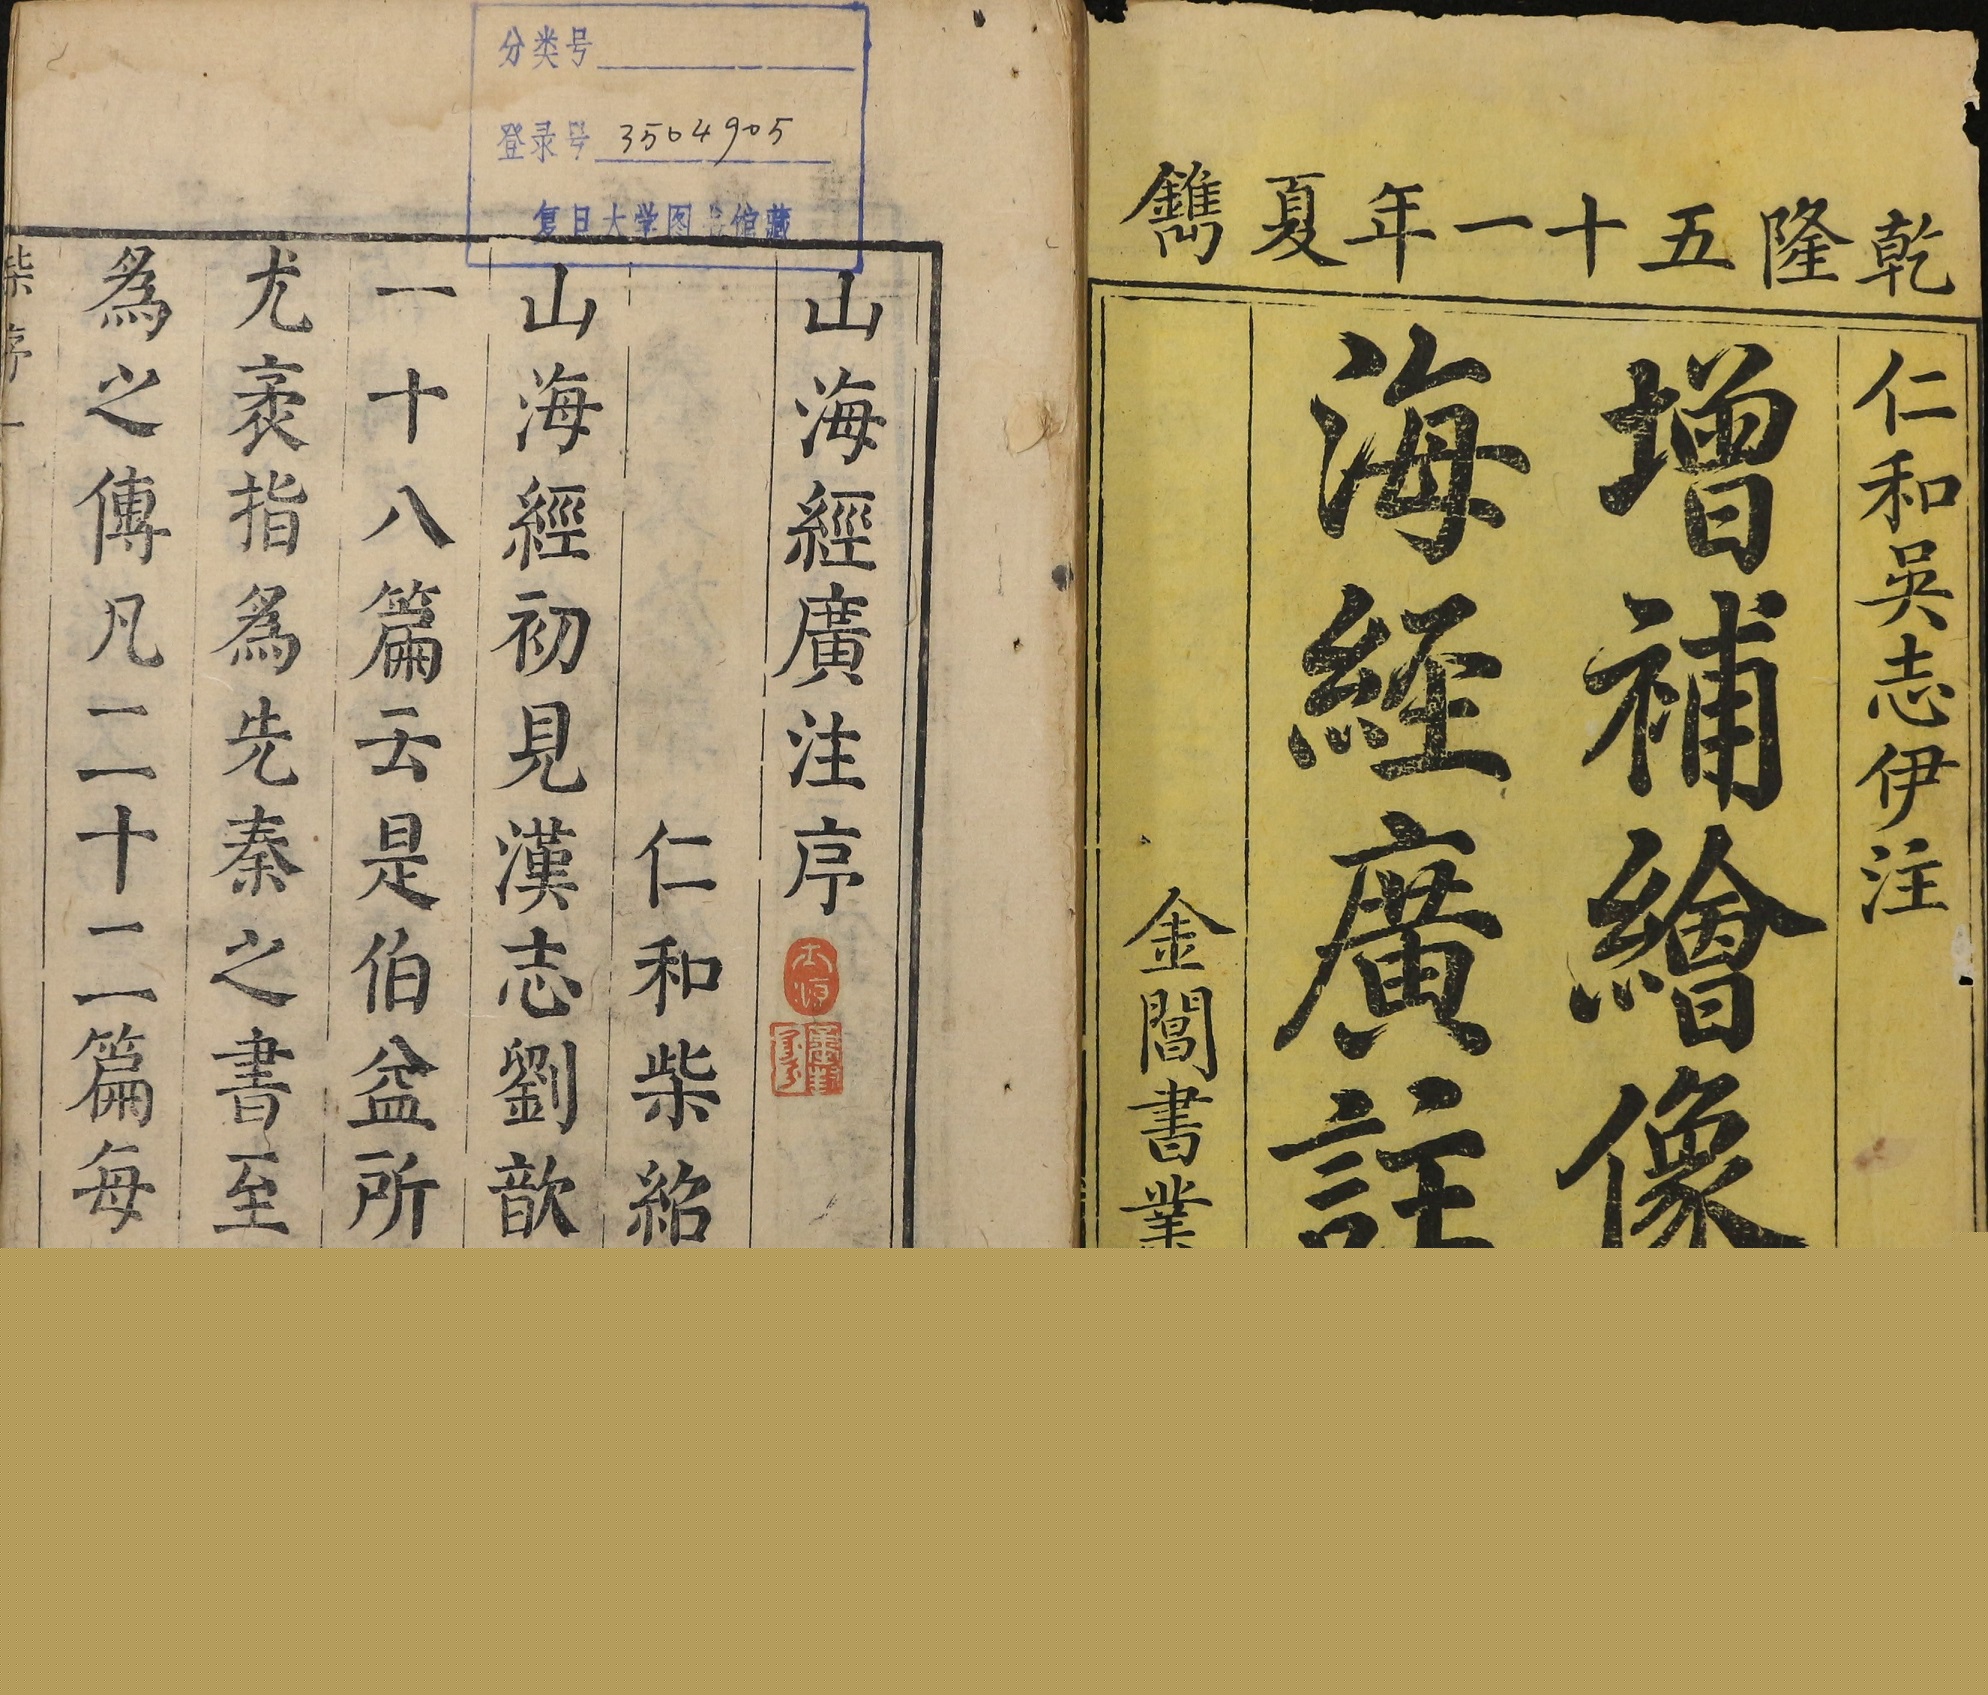 乾隆五十一年夏鐫
仁和吳志伊注
增補繪像
海經廣註
金閶書業
分类号
登录号 3504905
复旦大学图书馆藏
山海經廣注序
仁和柴紹
山海經初見漢志劉歆
一十八篇云是伯益所
尤袤指為先秦之書至
為之傳凡二十二篇每
柴序一